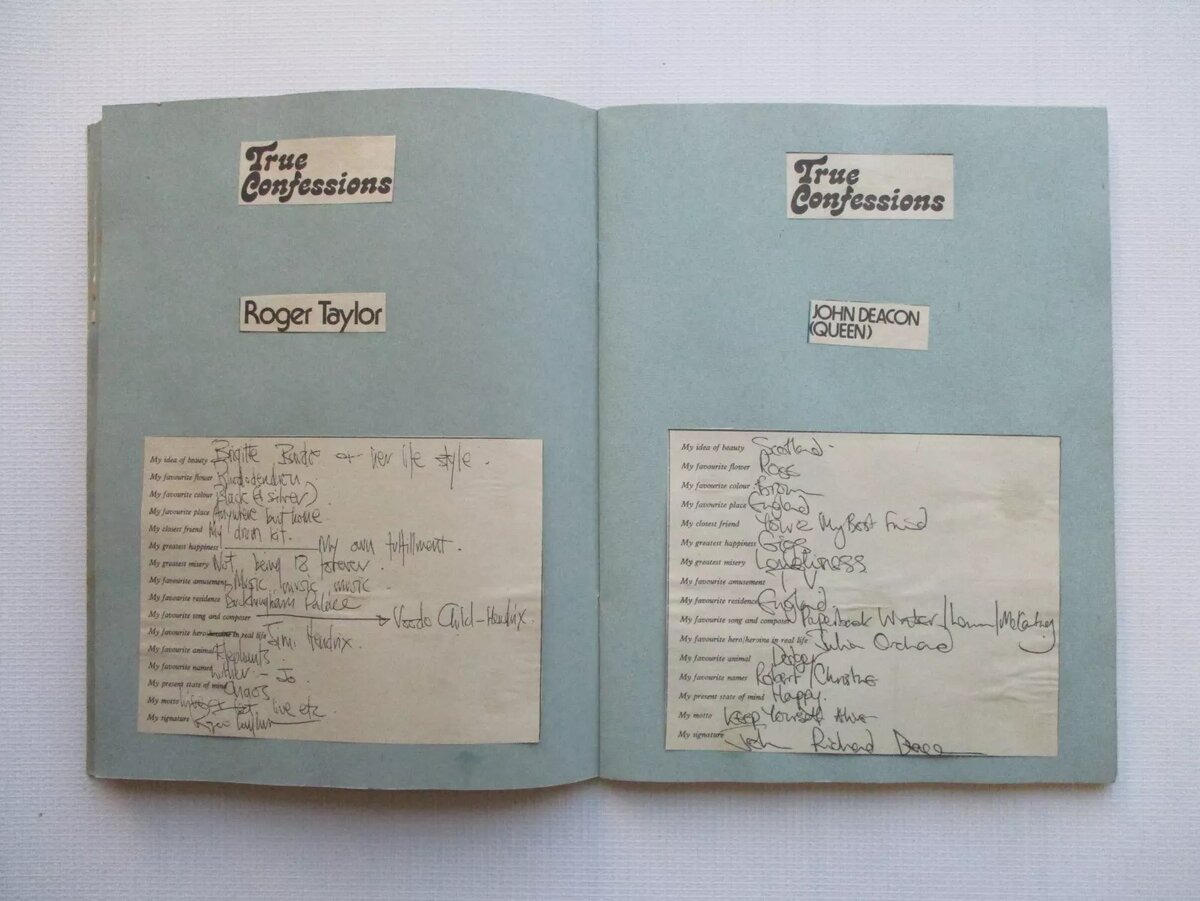 True
Confessions
Roger Taylor
My idea of beauty Brigitte Bardot + her life style.
My favourite flower Rhododendron
My favourite colour Black (& silver).
My favourite place Anywhere but home
My closest friend My drum kit.
My greatest happiness My own fulfillment.
My greatest misery Not being 18 forever.
My favourite amusement Music, music music
My favourite residence Buckingham Palace
My favourite song and composer Voodo Child - Hendrix.
My favourite hero in real life Jimi Hendrix.
My favourite animal Elephants.
My favourite named - Jo.
My present state of mind Chaos
My motto live etc
My signature Roger Taylor
True
Confessions
JOHN DEACON
(QUEEN)
My idea of beauty Scotland.
My favourite flower Rose
My favourite colour Brown
My favourite place England
My closest friend You're My Best Friend
My greatest happiness Gigs
My greatest misery Loneliness
My favourite amusement
My favourite residence England
My favourite song and composer Paperback Writer/Lennon/McCartney
My favourite hero/heroine in real life Julia Orchard
My favourite animal
My favourite names Robert/Christine
My present state of mind Happy.
My motto Keep Yourself Alive
My signature John Richard Deacon